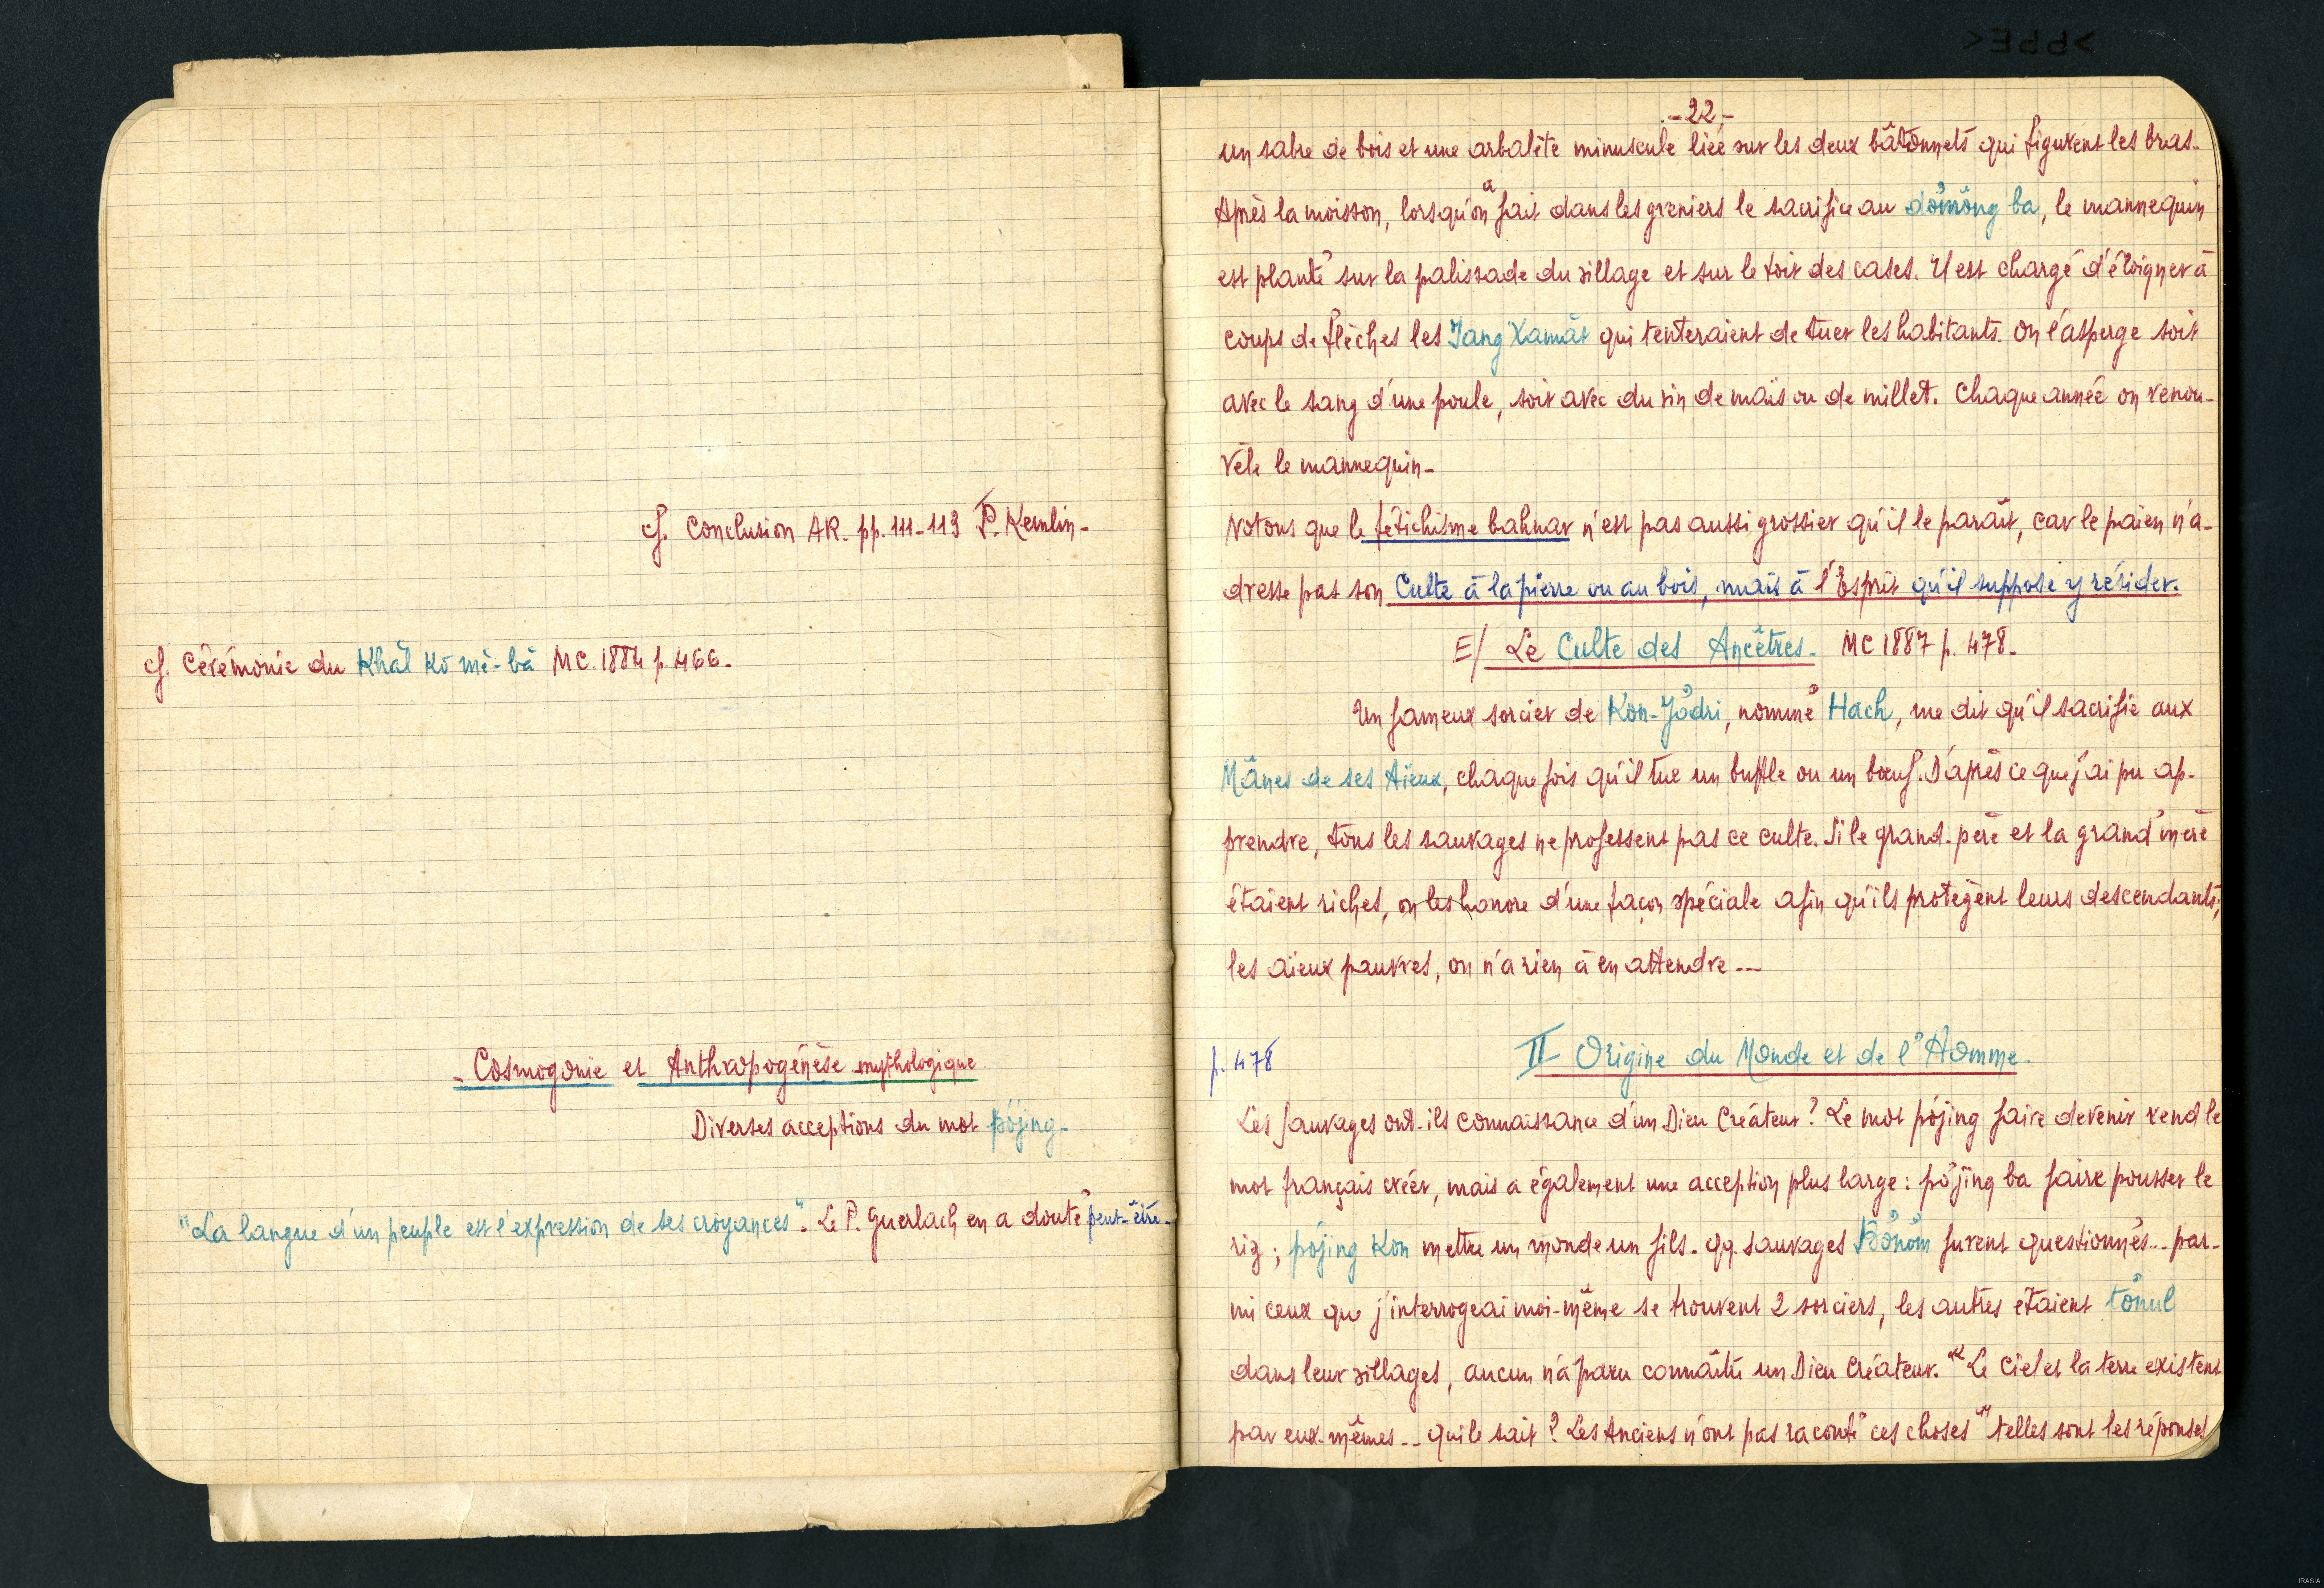 cf. Conclusion AR. pp. 111-113 P. Kemlin-
cf. Cérémonie du Khăl Kô mě-bă MC. 1884 p. 466.
- Cosmogonie et Anthropogénèse mythologique
Diverses acceptions du mot pơjing-
"La langue d'un peuple est l'expression de ses croyances". Le P. Guerlach en a douté peut-être-
-22-
un sabre de bois et une arbalète minuscule liée sur les deux bâtonnets qui figurent les bras.
Après la moisson, lorsqu'on a fait dans les greniers le sacrifice au dơmơng ba, le mannequin
est planté sur la palissade du village et sur le toit des cases. Il est chargé d'éloigner à
coups de flèches les Iang Xamăt qui tenteraient de tuer les habitants. On l'asperge soit
avec le sang d'une poule, soit avec du vin de maïs ou de millet. Chaque année on renou-
vèle le mannequin-
Notons que le fétichisme bahnar n'est pas aussi grossier qu'il le parait, car le païen n'a-
dresse pas son Culte à la pierre ou au bois, mais à l'Esprit qu'il suppose y résider.
E/ Le Culte des Ancêtres. MC 1887 p. 478.
Un fameux sorcier de Kon-Jơdri, nommé Hach, me dit qu'il sacrifie aux
Mânes de ses Aïeux, chaque fois qu'il tue un buffle ou un bœuf. D'après ce que j'ai pu ap-
prendre, tous les sauvages ne professent pas ce culte. Si le grand-père et la grand'mère
étaient riches, on les honore d'une façon spéciale afin qu'ils protègent leurs descendants;
les aïeux pauvres, on n'a rien à en attendre ---
p. 478
II- Origine du Monde et de l'Homme.
Les Sauvages ont-ils connaissance d'un Dieu Créateur? Le mot pơjing faire devenir rend le
mot français créer, mais a également une acception plus large: pơjing ba faire pousser le
riz; pơjing Kon mettre un monde un fils- qq. sauvages Bơnơm furent questionnés.. par-
mi ceux que j'interrogeai moi-même se trouvent 2 sorciers, les autres étaient tơnul
dans leur villages, aucun n'a paru connaître un Dieu Créateur. "Le Ciel et la terre existent
par eux-mêmes -- qui le sait? Les Anciens n'ont pas raconté ces choses" telles sont les réponses
IRASIA